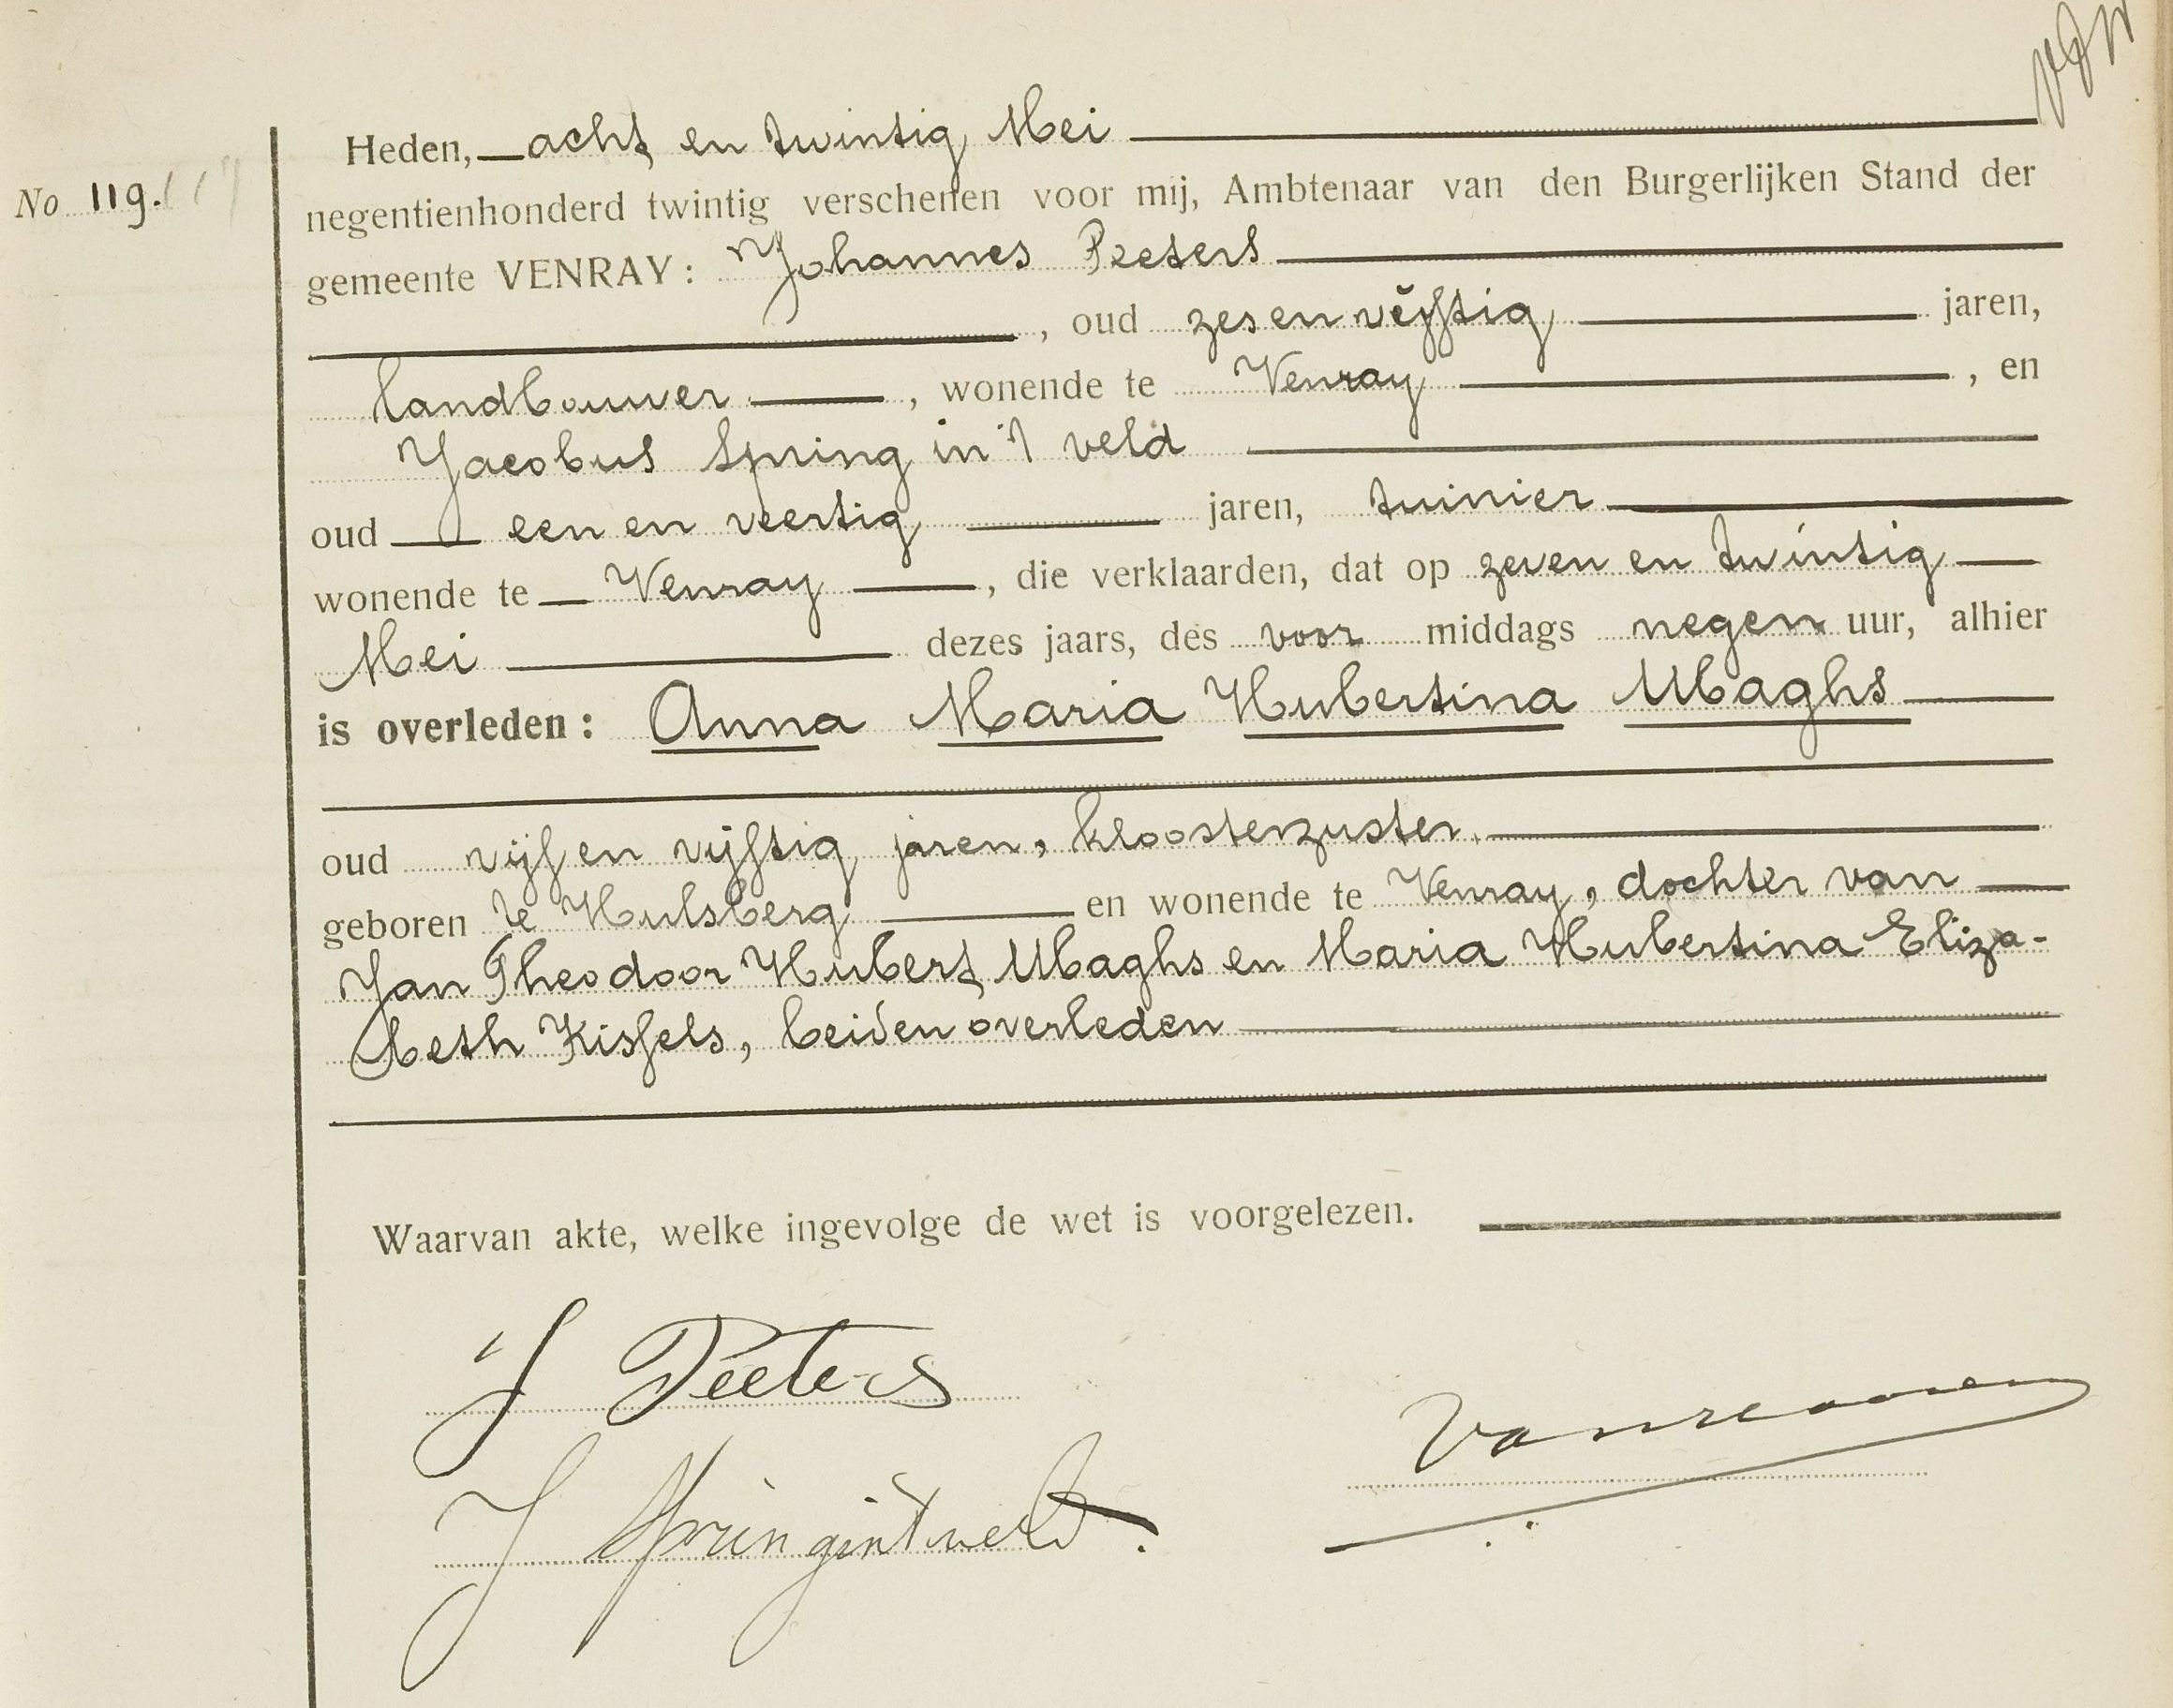 Heden, acht en twintig Mei
No 119.
negentienhonderd twintig verschenen voor mij, Ambtenaar van den Burgerlijken Stand der
gemeente VENRAY: Johannes Peeters
, oud zes en vijftig jaren,
landbouwer, wonende te Venray, en
Jacobus Spring in 't veld
oud een en veertig jaren, tuinier
wonende te Venray, die verklaarden, dat op zeven en twintig
Mei dezes jaars, des voor middags negen uur, alhier
is overleden: Anna Maria Hubertina Ubaghs
oud vijf en vijftig jaren, kloosterzuster.
geboren te Hulsberg en wonende te Venray, dochter van
Jan Theodoor Hubert Ubaghs en Maria Hubertina Eliza-
beth Kissels, beiden overleden
Waarvan akte, welke ingevolge de wet is voorgelezen.
J Peeters
J Springintveld.